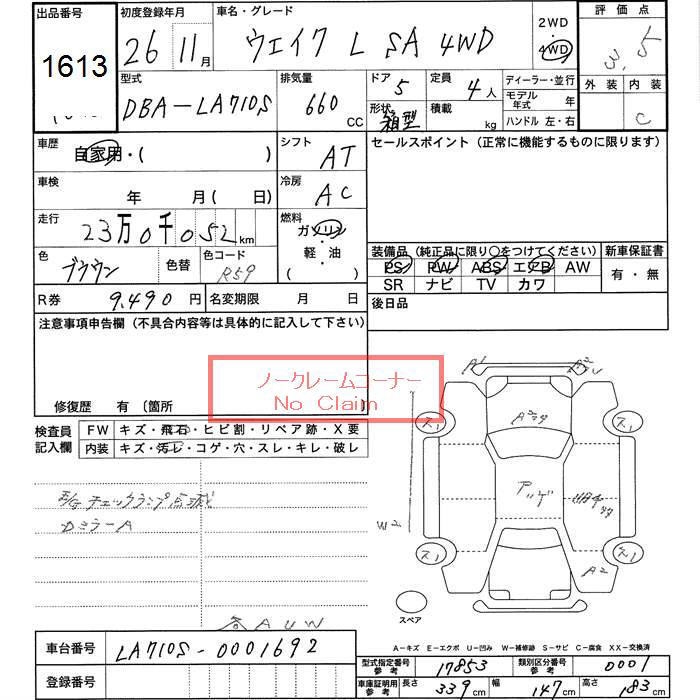 出品番号 初度登録年月 車名・グレード 2WD 評価点
1613 26 11月 ウェイク L SA 4WD 4WD 3.5
型式 排気量 ドア 5 定員 4人 ディーラー・並行 外装 内装
DBA-LA710S 660 CC 形状 箱型 積載 kg モデル年式 年
ハンドル 左・右 C
車歴 自家用・( ) シフト AT セールスポイント (正常に機能するものに限ります)
車検 年 月( 日) 冷房 AC
走行 23万0千052km 燃料 ガソリン・軽油 ( )
装備品 (純正品に限り○をつけてください) 新車保証書
色 ブラウン 色替 色コード R59 PS PW ABS エアB AW 有・無
SR ナビ TV カワ
R券 9,490 円 名変期限 月 日 後日品
注意事項申告欄 (不具合内容等は具体的に記入して下さい)
ノークレームコーナー
No Claim
修復歴 有 〔箇所
検査員記入欄 FW キズ・飛石・ヒビ割・リペア跡・X要
内装 キズ・汚レ・コゲ・穴・スレ・キレ・破レ
A1
ス1 ス1
W2 アッゲ
チェックランプ点滅
ミラーA
ス1 ス1
A2
スペア
各AUW
A-キズ E-エクボ U-凹み W-補修跡 S-サビ C-腐食 XX-交換済
車台番号 LA710S-0001692
型式指定番号 参考 17853 類別区分番号 参考 0001
登録番号 車庫証明用 参考 長さ 339cm 幅 147cm 高さ 183cm